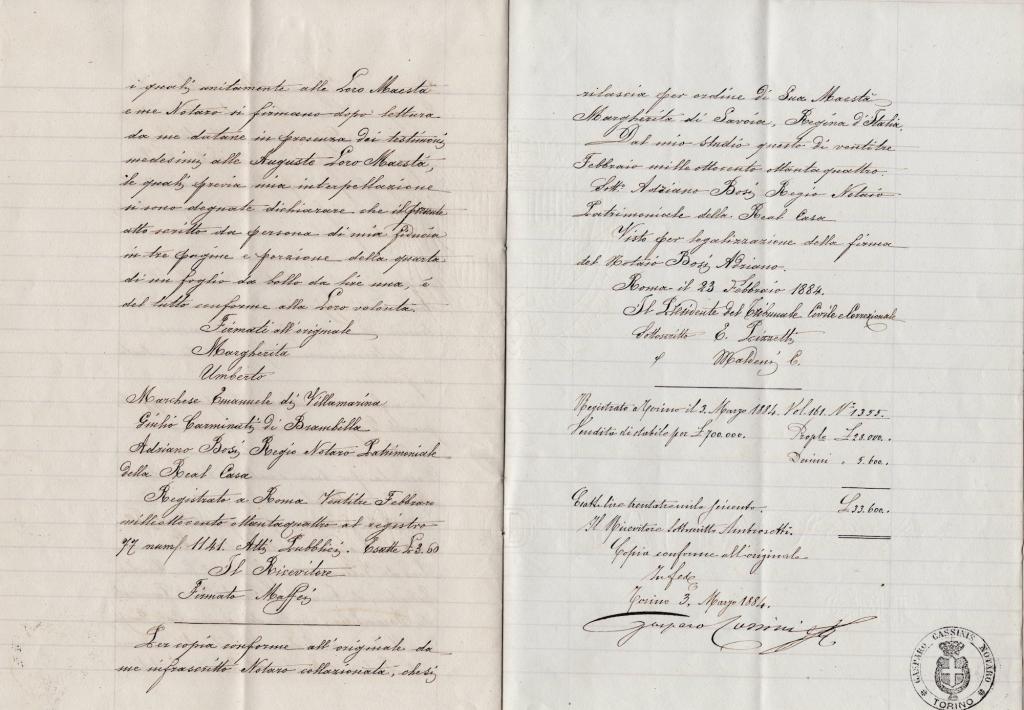 i quali unitamente alle Loro Maestà
e me Notaro si firmano dopo lettura
da me datane in presenza dei testimoni
medesimi alle Auguste Loro Maestà,
le quali previa mia interpellazione
si sono degnate dichiarare che il presente
atto scritto da persona di mia fiducia
in tre pagine e porzione della quarta
di un foglio da bollo da lire una, è
del tutto conforme alla Loro volontà.
Firmati all'originale
Margherita
Umberto
Marchese Emanuele di Villamarina
Giulio Carminati di Brambilla
Adriano Bosi Regio Notaro Patrimoniale
della Real Casa
Registrato a Roma Ventitre Febbraro
milleottocento ottantaquattro al registro
77 num. 1141. Atti Pubblici. Esatte L 3.60
Il Ricevitore
Firmato Maffei
Per copia conforme all'originale da
me infrascritto Notaro collazionata, che si
rilascia per ordine di Sua Maestà
Margherita di Savoia, Regina d'Italia.
Dal mio studio questo dì ventitre
Febbraio mille ottocento ottantaquattro.
Sott. Adriano Bosi Regio Notaro
Patrimoniale della Real Casa
Visto per legalizzazione della firma
del Notaio Bosi Adriano.
Roma il 23 Febbraio 1884.
Il Presidente del Tribunale Civile e Correzionale
Sottoscritto E.
C.
Registrato a Torino il 3. Marzo 1884. Vol. 161. N° 1355.
Vendita di stabile per £ 700.000. Prople £ 28.000.
Decimi " 5.600.
Esatte lire trentatremila seicento. £ 33.600.
Il Ricevitore Sottoscritto Ambrosetti.
Copia conforme all'originale
In fede
Torino 3. Marzo 1884.
Gasparo Cassinis
GASPARO CASSINIS NOTARO
TORINO